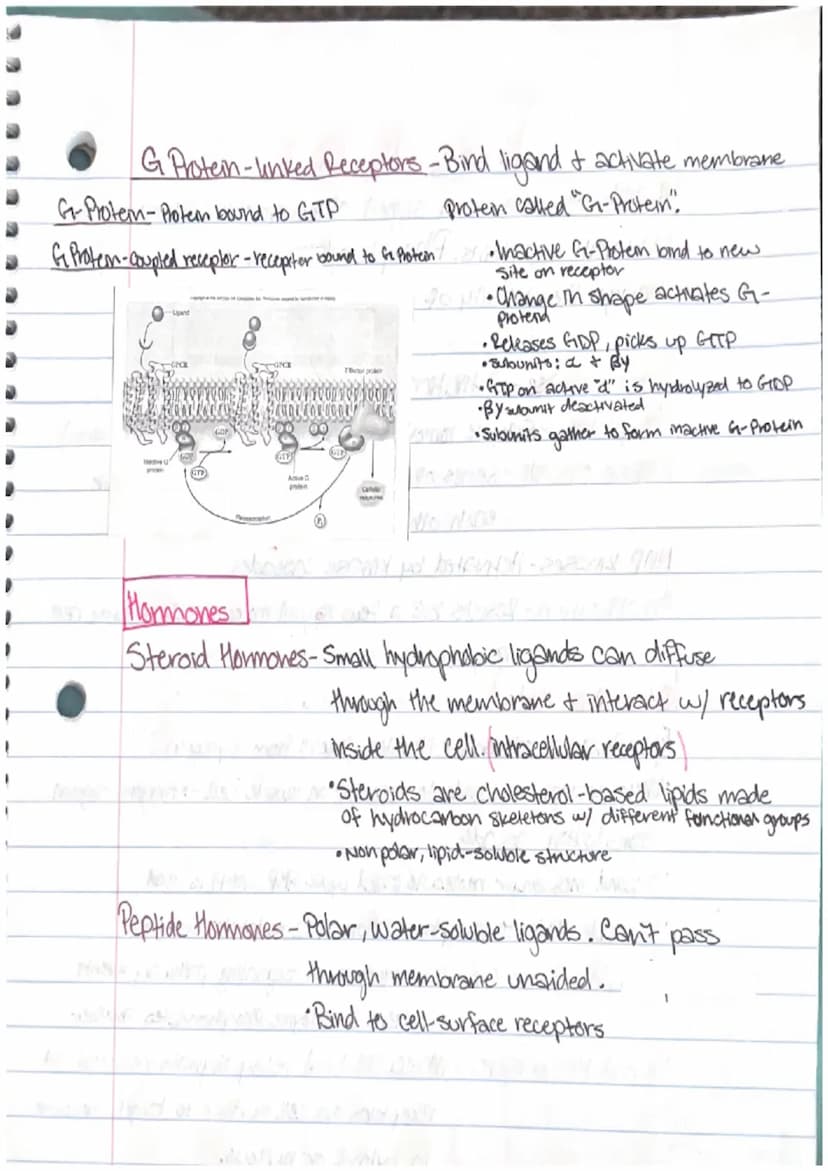 G Protein-linked Receptors - Bind ligand & activate membrane
protein called "G-Protein".
G-Protein - Protein bound to GTP
G Protein-coupled receptor - receptor bound to G Protein
• Inactive G-Protein bind to new
site on receptor
• Change in shape activates G-
protein
• Releases GDP, picks up GTP
• Subunits: α + βγ
• GTP on active "α" is hydrolyzed to GDP
• βγ subunit deactivated
• Subunits gather to form inactive G-Protein
Ligand
GPCR
GPCR
Effector protein
Inactive G
protein
GDP
GTP
GDP
GTP
Active G
protein
GDP
Cellular
response
Pi
Hormones
Steroid Hormones - Small hydrophobic ligands can diffuse
through the membrane & interact w/ receptors
inside the cell. (intracellular receptors)
• Steroids are cholesterol-based lipids made
of hydrocarbon skeletons w/ different functional groups
• Nonpolar, lipid-soluble structure
Peptide Hormones - Polar, water-soluble ligands. Can't pass
through membrane unaided.
• Bind to cell-surface receptors